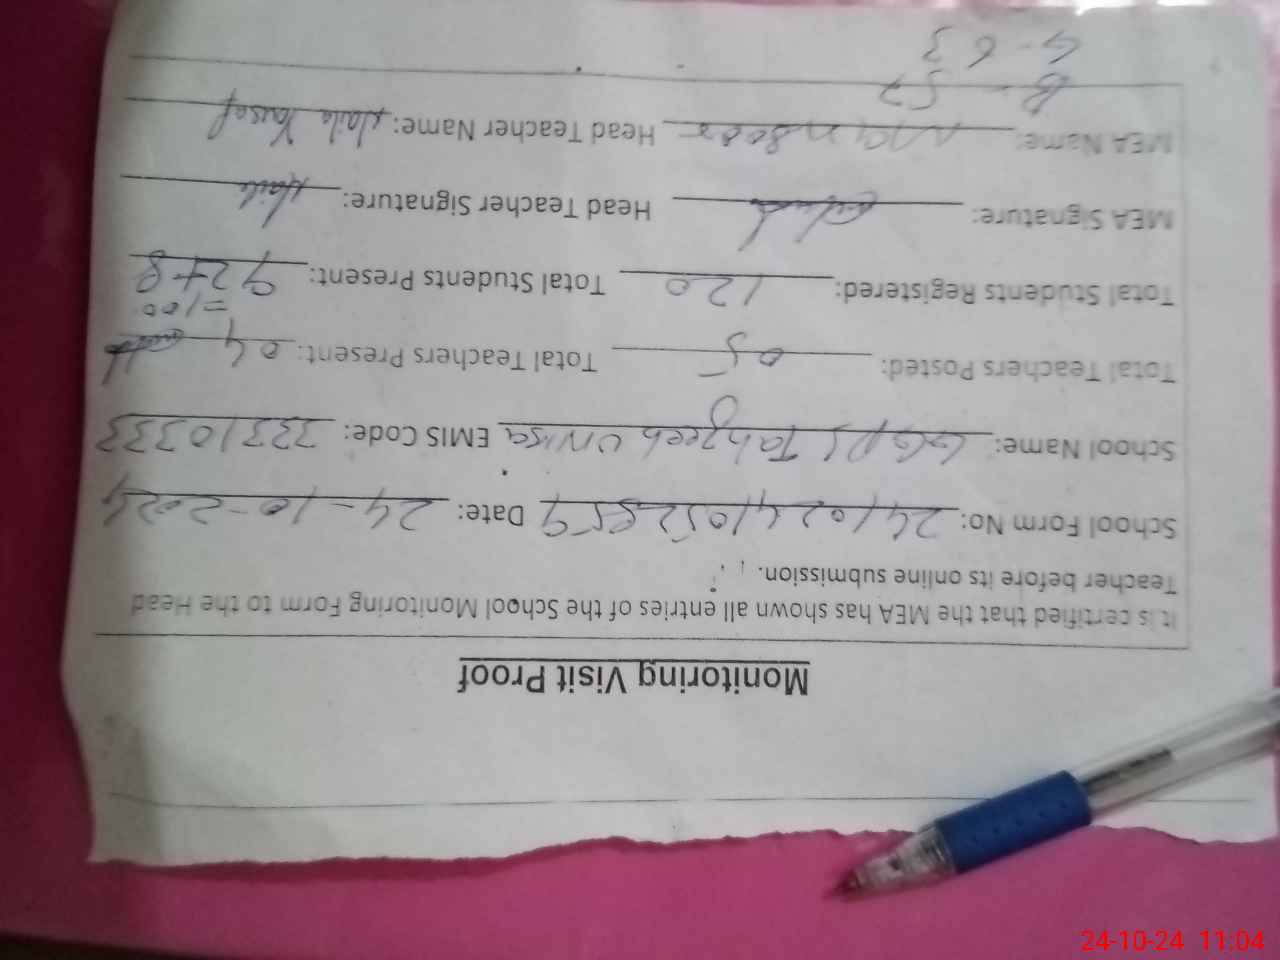 Monitoring Visit Proof
It is certified that the MEA has shown all entries of the School Monitoring Form to the Head
Teacher before its online submission.
School Form No: 24102410528559 Date: 24-10-2024
School Name: GGPS Tahzeeb un Nisa EMIS Code: 33310333
Total Teachers Posted: 05 Total Teachers Present: 04
=100
Total Students Registered: 120 Total Students Present: 92+8
MEA Signature: Head Teacher Signature: Naila
MEA Name: Mansoor Head Teacher Name: Naila Yousaf
B - 57
G - 63
24-10-24 11:04